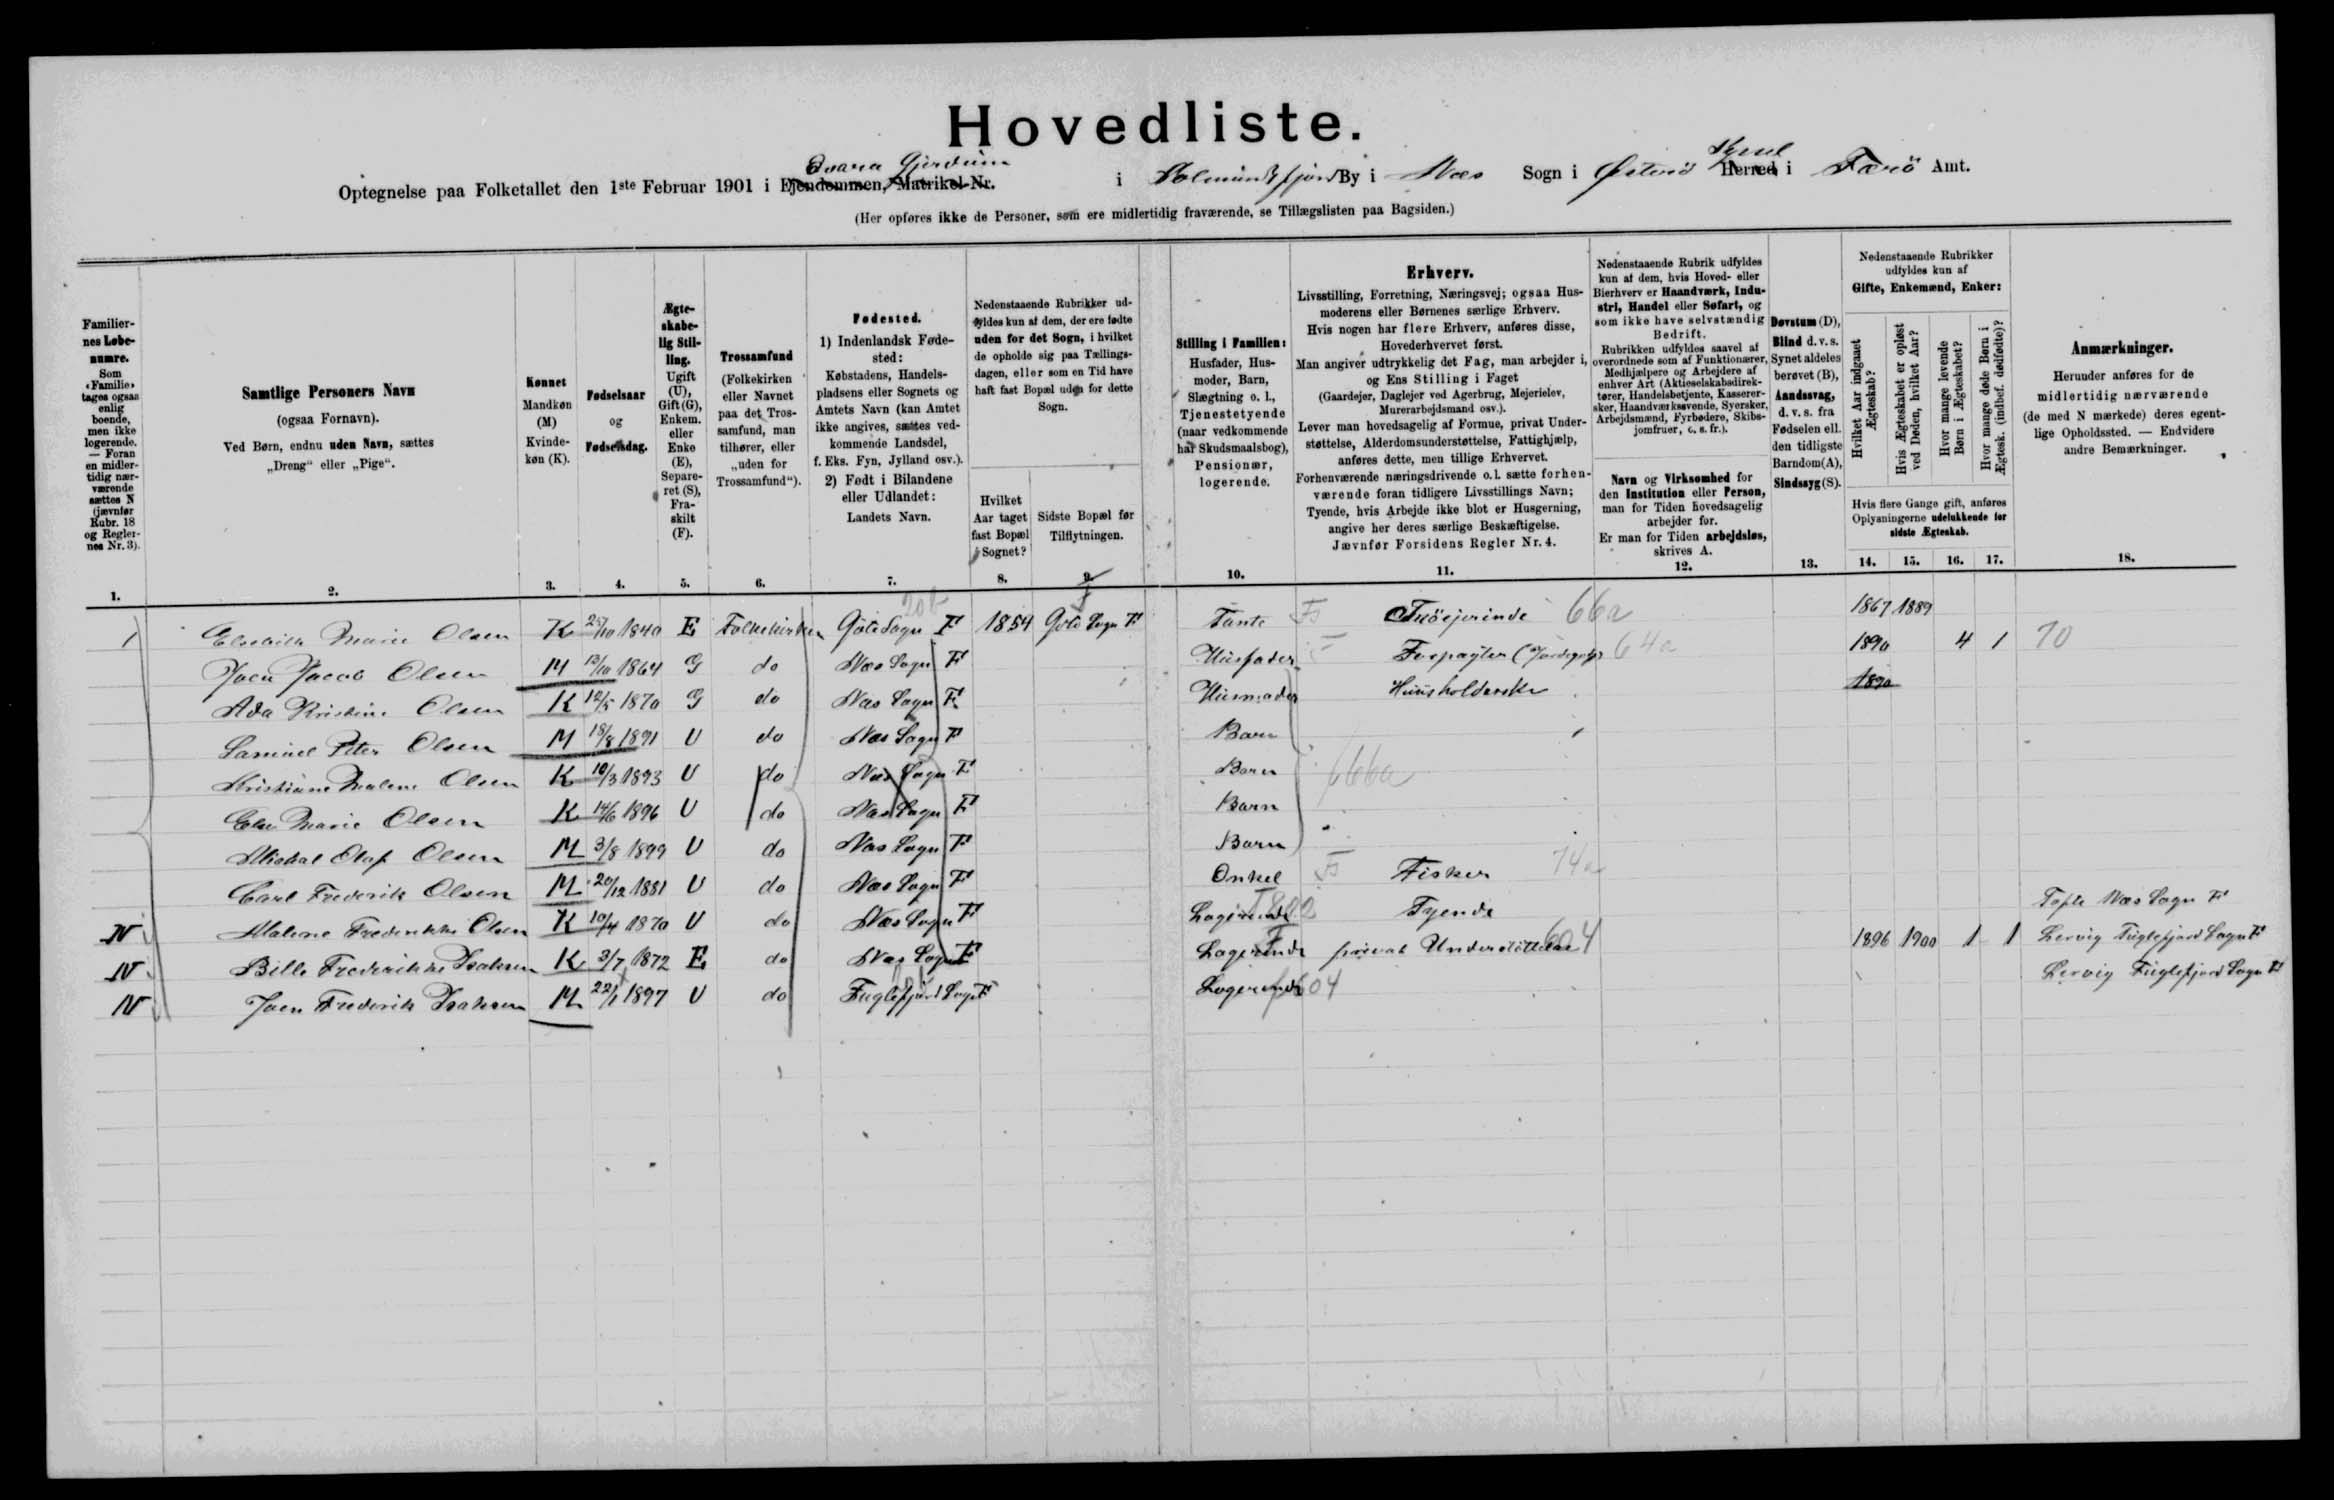 Hovedliste.
Gjerdum
Syssel
Optegnelse paa Folketallet den 1ste Februar 1901 i Ejendommen, Matrikel-Nr. i Solmundefjord By i Næs Sogn i Østerö Herred i Færö Amt.
(Her opføres ikke de Personer, som ere midlertidig fraværende, se Tillægslisten paa Bagsiden.)
Familier-
nes Løbe-
numre.
Som
«Familie»
tages ogsaa
enlig
boende,
men ikke
logerende.
— Foran
en midler-
tidig nær-
værende
sættes N
(jævnfør
Rubr. 18
og Regler-
nes Nr. 3).
1.
Samtlige Personers Navn
(ogsaa Fornavn).
Ved Børn, endnu uden Navn, sættes
„Dreng“ eller „Pige“.
2.
Kønnet
Mandkøn
(M)
Kvinde-
køn (K).
3.
Fødselsaar
og
Fødselsdag.
4.
Ægte-
skabe-
lig Stil-
ling.
Ugift
(U),
Gift (G),
Enkem.
eller
Enke
(E),
Separe-
ret (S),
Fra-
skilt
(F).
5.
Trossamfund
(Folkekirken
eller Navnet
paa det Tros-
samfund, man
tilhører, eller
„uden for
Trossamfund“).
6.
Fødested.
1) Indenlandsk Føde-
sted:
Købstadens, Handels-
pladsens eller Sognets og
Amtets Navn (kan Amtet
ikke angives, sættes ved-
kommende Landsdel,
f. Eks. Fyn, Jylland osv.).
2) Født i Bilandene
eller Udlandet:
Landets Navn.
7.
Nedenstaaende Rubrikker ud-
fyldes kun af dem, der ere fødte
uden for det Sogn, i hvilket
de opholde sig paa Tællings-
dagen, eller som en Tid have
haft fast Bopæl uden for dette
Sogn.
Hvilket
Aar taget
fast Bopæl
i Sognet?
8.
Sidste Bopæl før
Tilflytningen.
9.
Stilling i Familien:
Husfader, Hus-
moder, Barn,
Slægtning o. l.,
Tjenestetyende
(naar vedkommende
har Skudsmaalsbog),
Pensionær,
logerende.
10.
Erhverv.
Livsstilling, Forretning, Næringsvej; ogsaa Hus-
moderens eller Børnenes særlige Erhverv.
Hvis nogen har flere Erhverv, anføres disse,
Hovederhvervet først.
Man angiver udtrykkelig det Fag, man arbejder i,
og Ens Stilling i Faget
(Gaardejer, Daglejer ved Agerbrug, Mejerielev,
Murerarbejdsmand osv.).
Lever man hovedsagelig af Formue, privat Under-
støttelse, Alderdomsunderstøttelse, Fattighjælp,
anføres dette, men tillige Erhvervet.
Forhenværende næringsdrivende o.l. sætte forhen-
værende foran tidligere Livsstillings Navn;
Tyende, hvis Arbejde ikke blot er Husgerning,
angive her deres særlige Beskæftigelse.
Jævnfør Forsidens Regler Nr. 4.
11.
Nedenstaaende Rubrik udfyldes
kun af dem, hvis Hoved- eller
Bierhverv er Haandværk, Indu-
stri, Handel eller Søfart, og
som ikke have selvstændig
Bedrift.
Rubrikken udfyldes saavel af
overordnede som af Funktionærer,
Medhjælpere og Arbejdere af
enhver Art (Aktieselskabsdirek-
tører, Handelsbetjente, Kasserer-
sker, Haandværkssvende, Syersker,
Arbejdsmænd, Fyrbødere, Skibs-
jomfruer, o. s. fr.).
Navn og Virksomhed for
den Institution eller Person,
man for Tiden hovedsagelig
arbejder for.
Er man for Tiden arbejdsløs,
skrives A.
12.
Døvstum (D),
Blind d. v. s.
Synet aldeles
berøvet (B),
Aandssvag,
d. v. s. fra
Fødselen ell.
den tidligste
Barndom (A),
Sindssyg (S).
13.
Nedenstaaende Rubrikker
udfyldes kun af
Gifte, Enkemænd, Enker:
Hvilket Aar indgaaet
Ægteskab?
Hvis Ægteskabet er opløst
ved Døden, hvilket Aar?
Hvor mange levende
Børn i Ægteskabet?
Hvor mange døde Børn i
Ægtesk. (indbef. dødfødte)?
Hvis flere Gange gift, anføres
Oplysningerne udelukkende for
sidste Ægteskab.
14. 15. 16. 17.
Anmærkninger.
Herunder anføres for de
midlertidig nærværende
(de med N mærkede) deres egent-
lige Opholdssted. — Endvidere
andre Bemærkninger.
18.
1 Marie Olsen K 1840 E Folkekirken Göte Sogn F 1854 Göte Sogn F Tante 66a 1867 1889
Joen Jacob Olsen M 13/10 1864 G do Næs Sogn F Husfader Forpagter 64a 1890 4 1 70
Ada Kristine Olsen K 1870 G do Næs Sogn F Husmoder Huusholderske 1890
Samuel Peter Olsen M 18/8 1891 U do Næs Sogn F Barn
Kristiane Malene Olsen K 10/3 1893 U do Næs Sogn F Barn 666a
Else Marie Olsen K 14/6 1896 U do Næs Sogn F Barn
Mickal Olaf Olsen M 3/8 1899 U do Næs Sogn F Barn
Carl Frederik Olsen M 20/12 1881 U do Næs Sogn F Onkel Fisker 74a
N Malene Frederikke Olsen K 10/4 1870 U do Næs Sogn F Logerende Tyende Tofte Næs Sogn F
N Bille Frederikke Isaksen K 3/7 1872 E do Næs Sogn F Logerende privat Understöttelse 604 1896 1900 1 1 Lervig Fuglefjord Sogn F
N Joen Frederik Isaksen M 22/1 1897 U do Fuglefjord Sogn F Logerende 604 Lervig Fuglefjord Sogn F